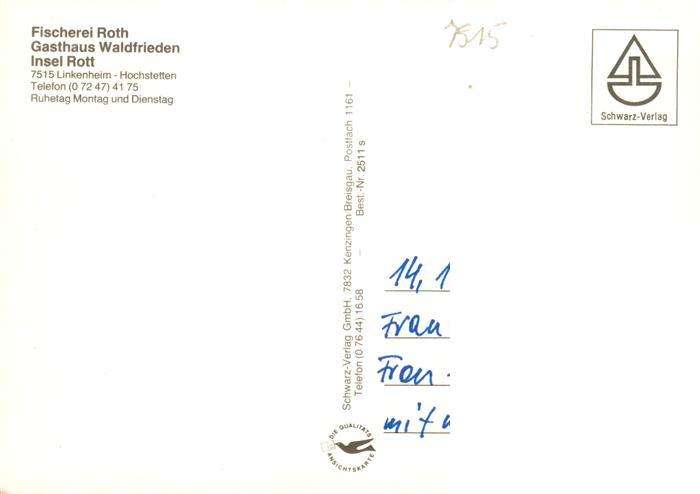 Fischerei Roth
Gasthaus Waldfrieden
Insel Rott
7515 Linkenheim - Hochstetten
Telefon (0 72 47) 41 75
Ruhetag Montag und Dienstag
7515
Schwarz-Verlag
Schwarz-Verlag GmbH, 7832 Kenzingen Breisgau, Postfach 1161 -
Telefon (0 76 44) 16 58 - Best.-Nr. 2511 s
14,1
Fran
Fran
mit
DIE QUALITÄTS
ANSICHTSKARTE